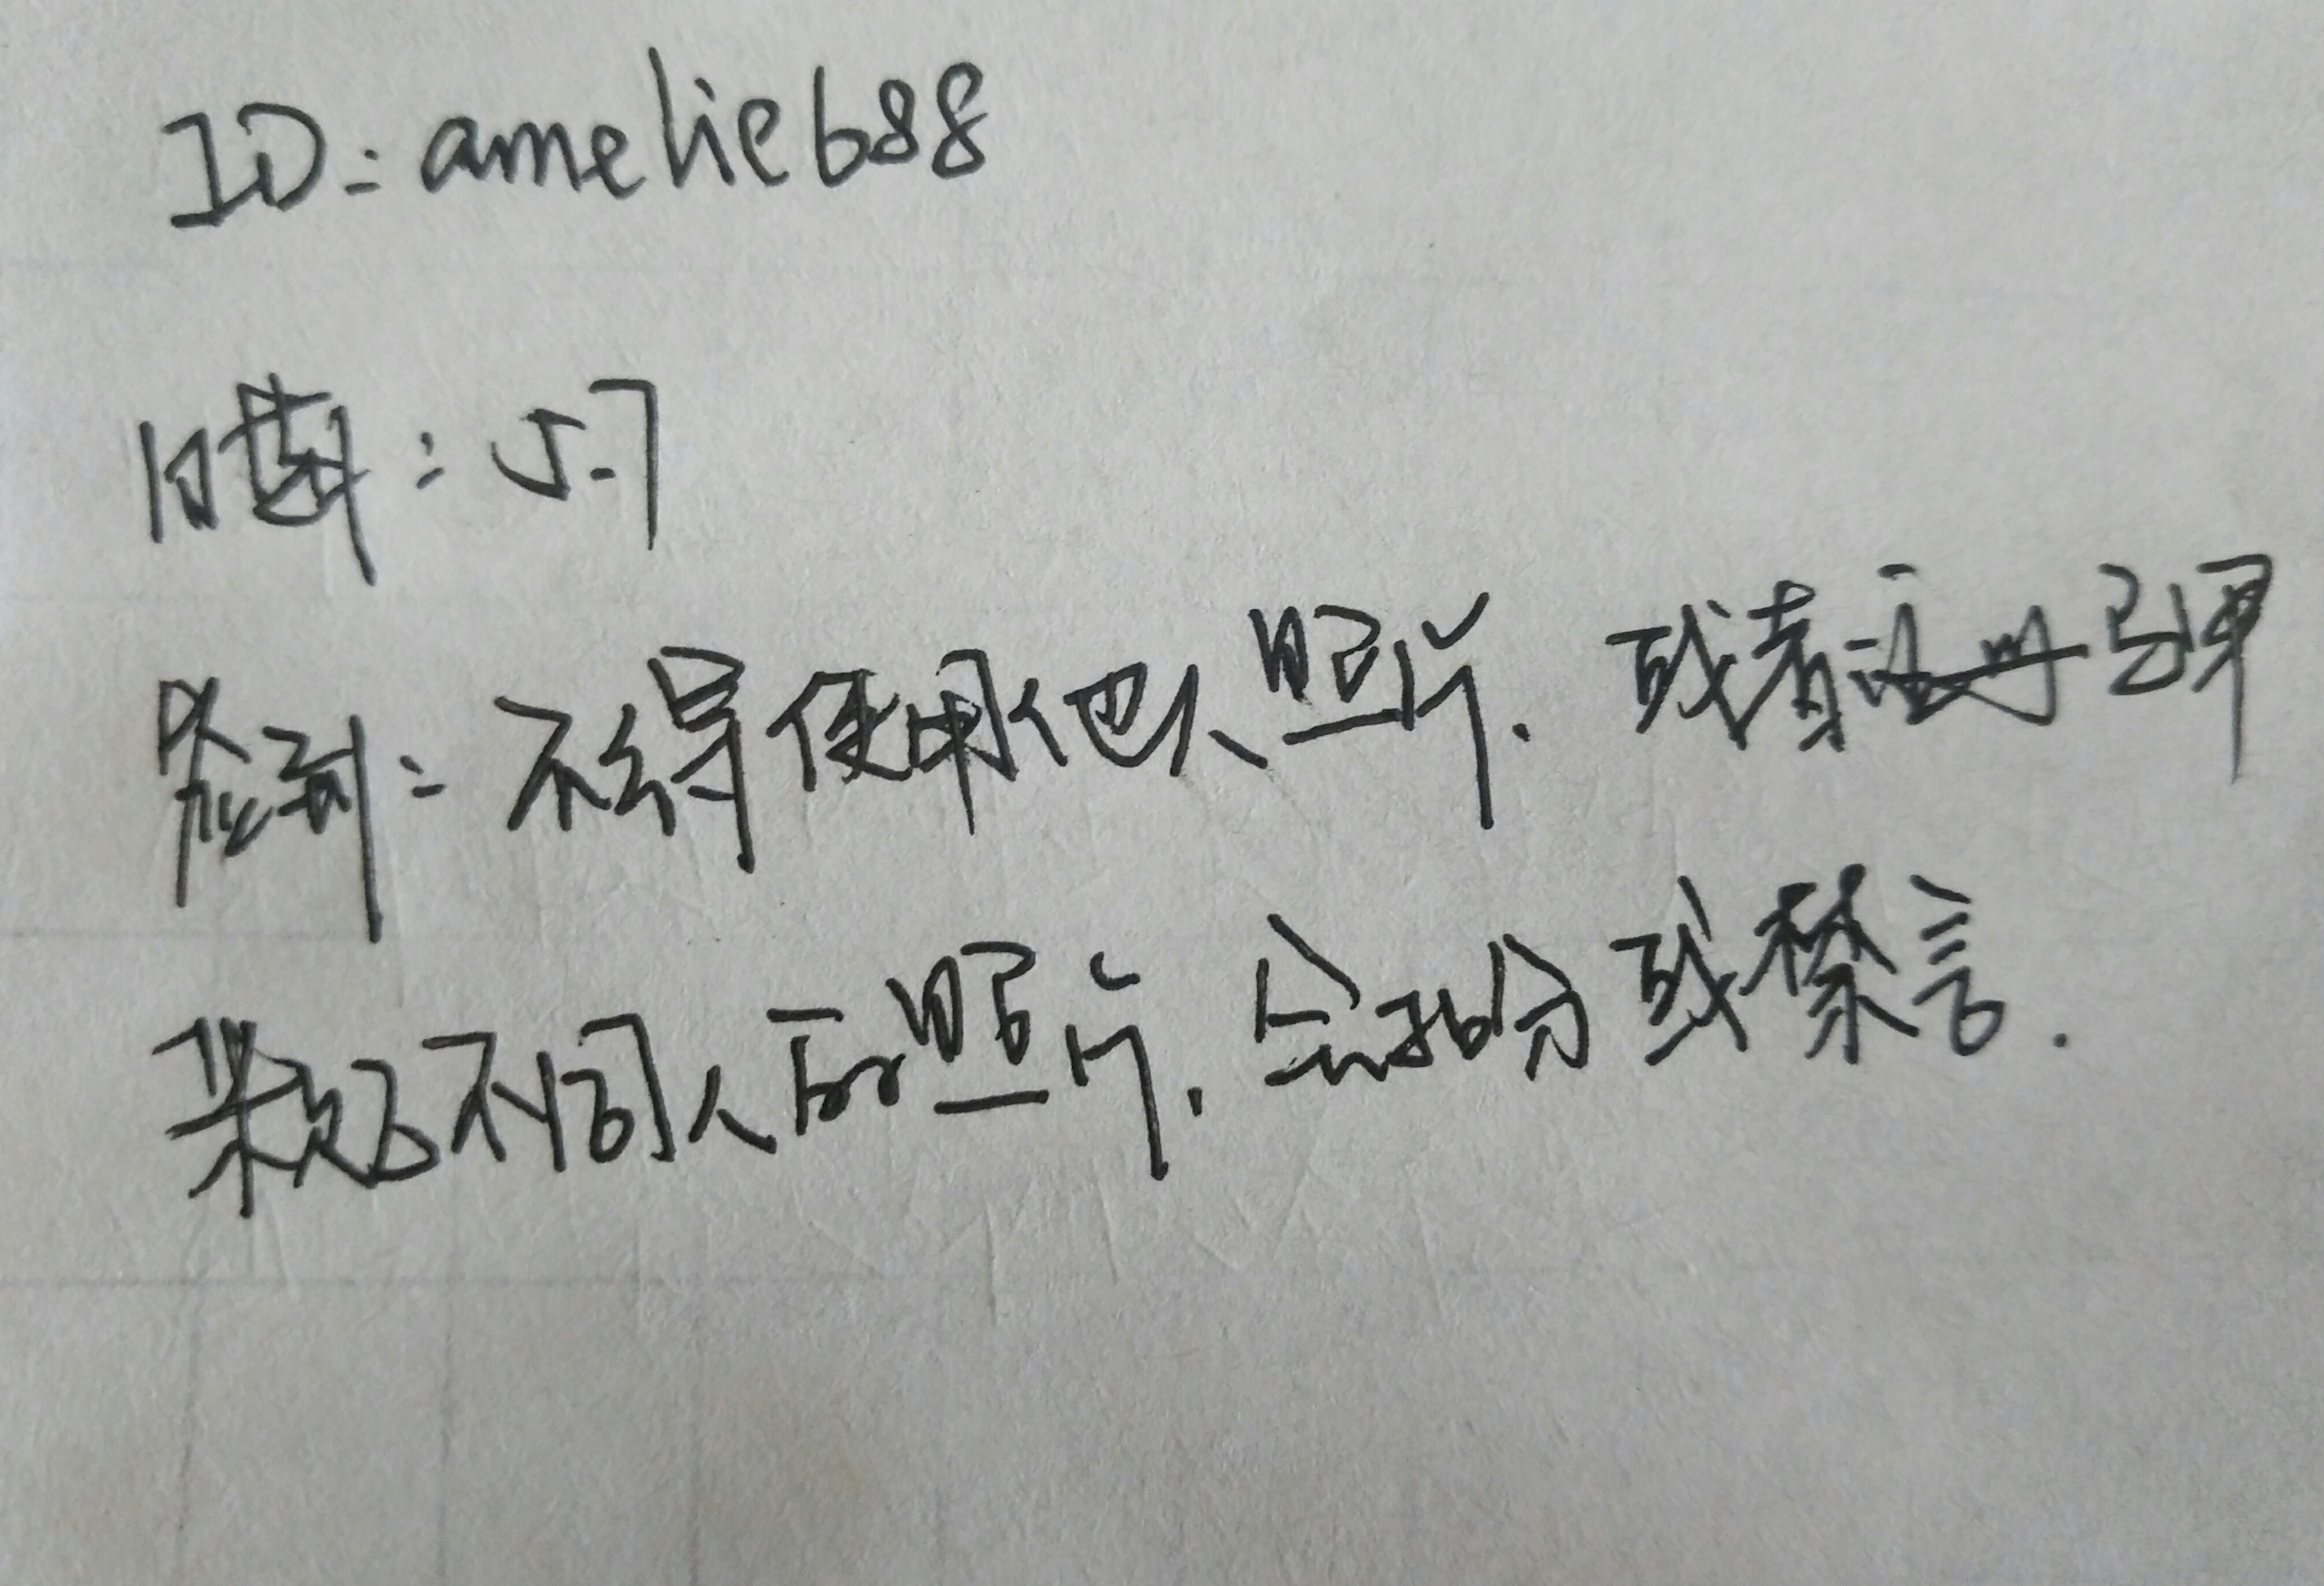 ID: amelie688
日期: 5-7
签到: 不得使用他人照片. 或者马甲
不同人的照片. 会扣分或禁言.